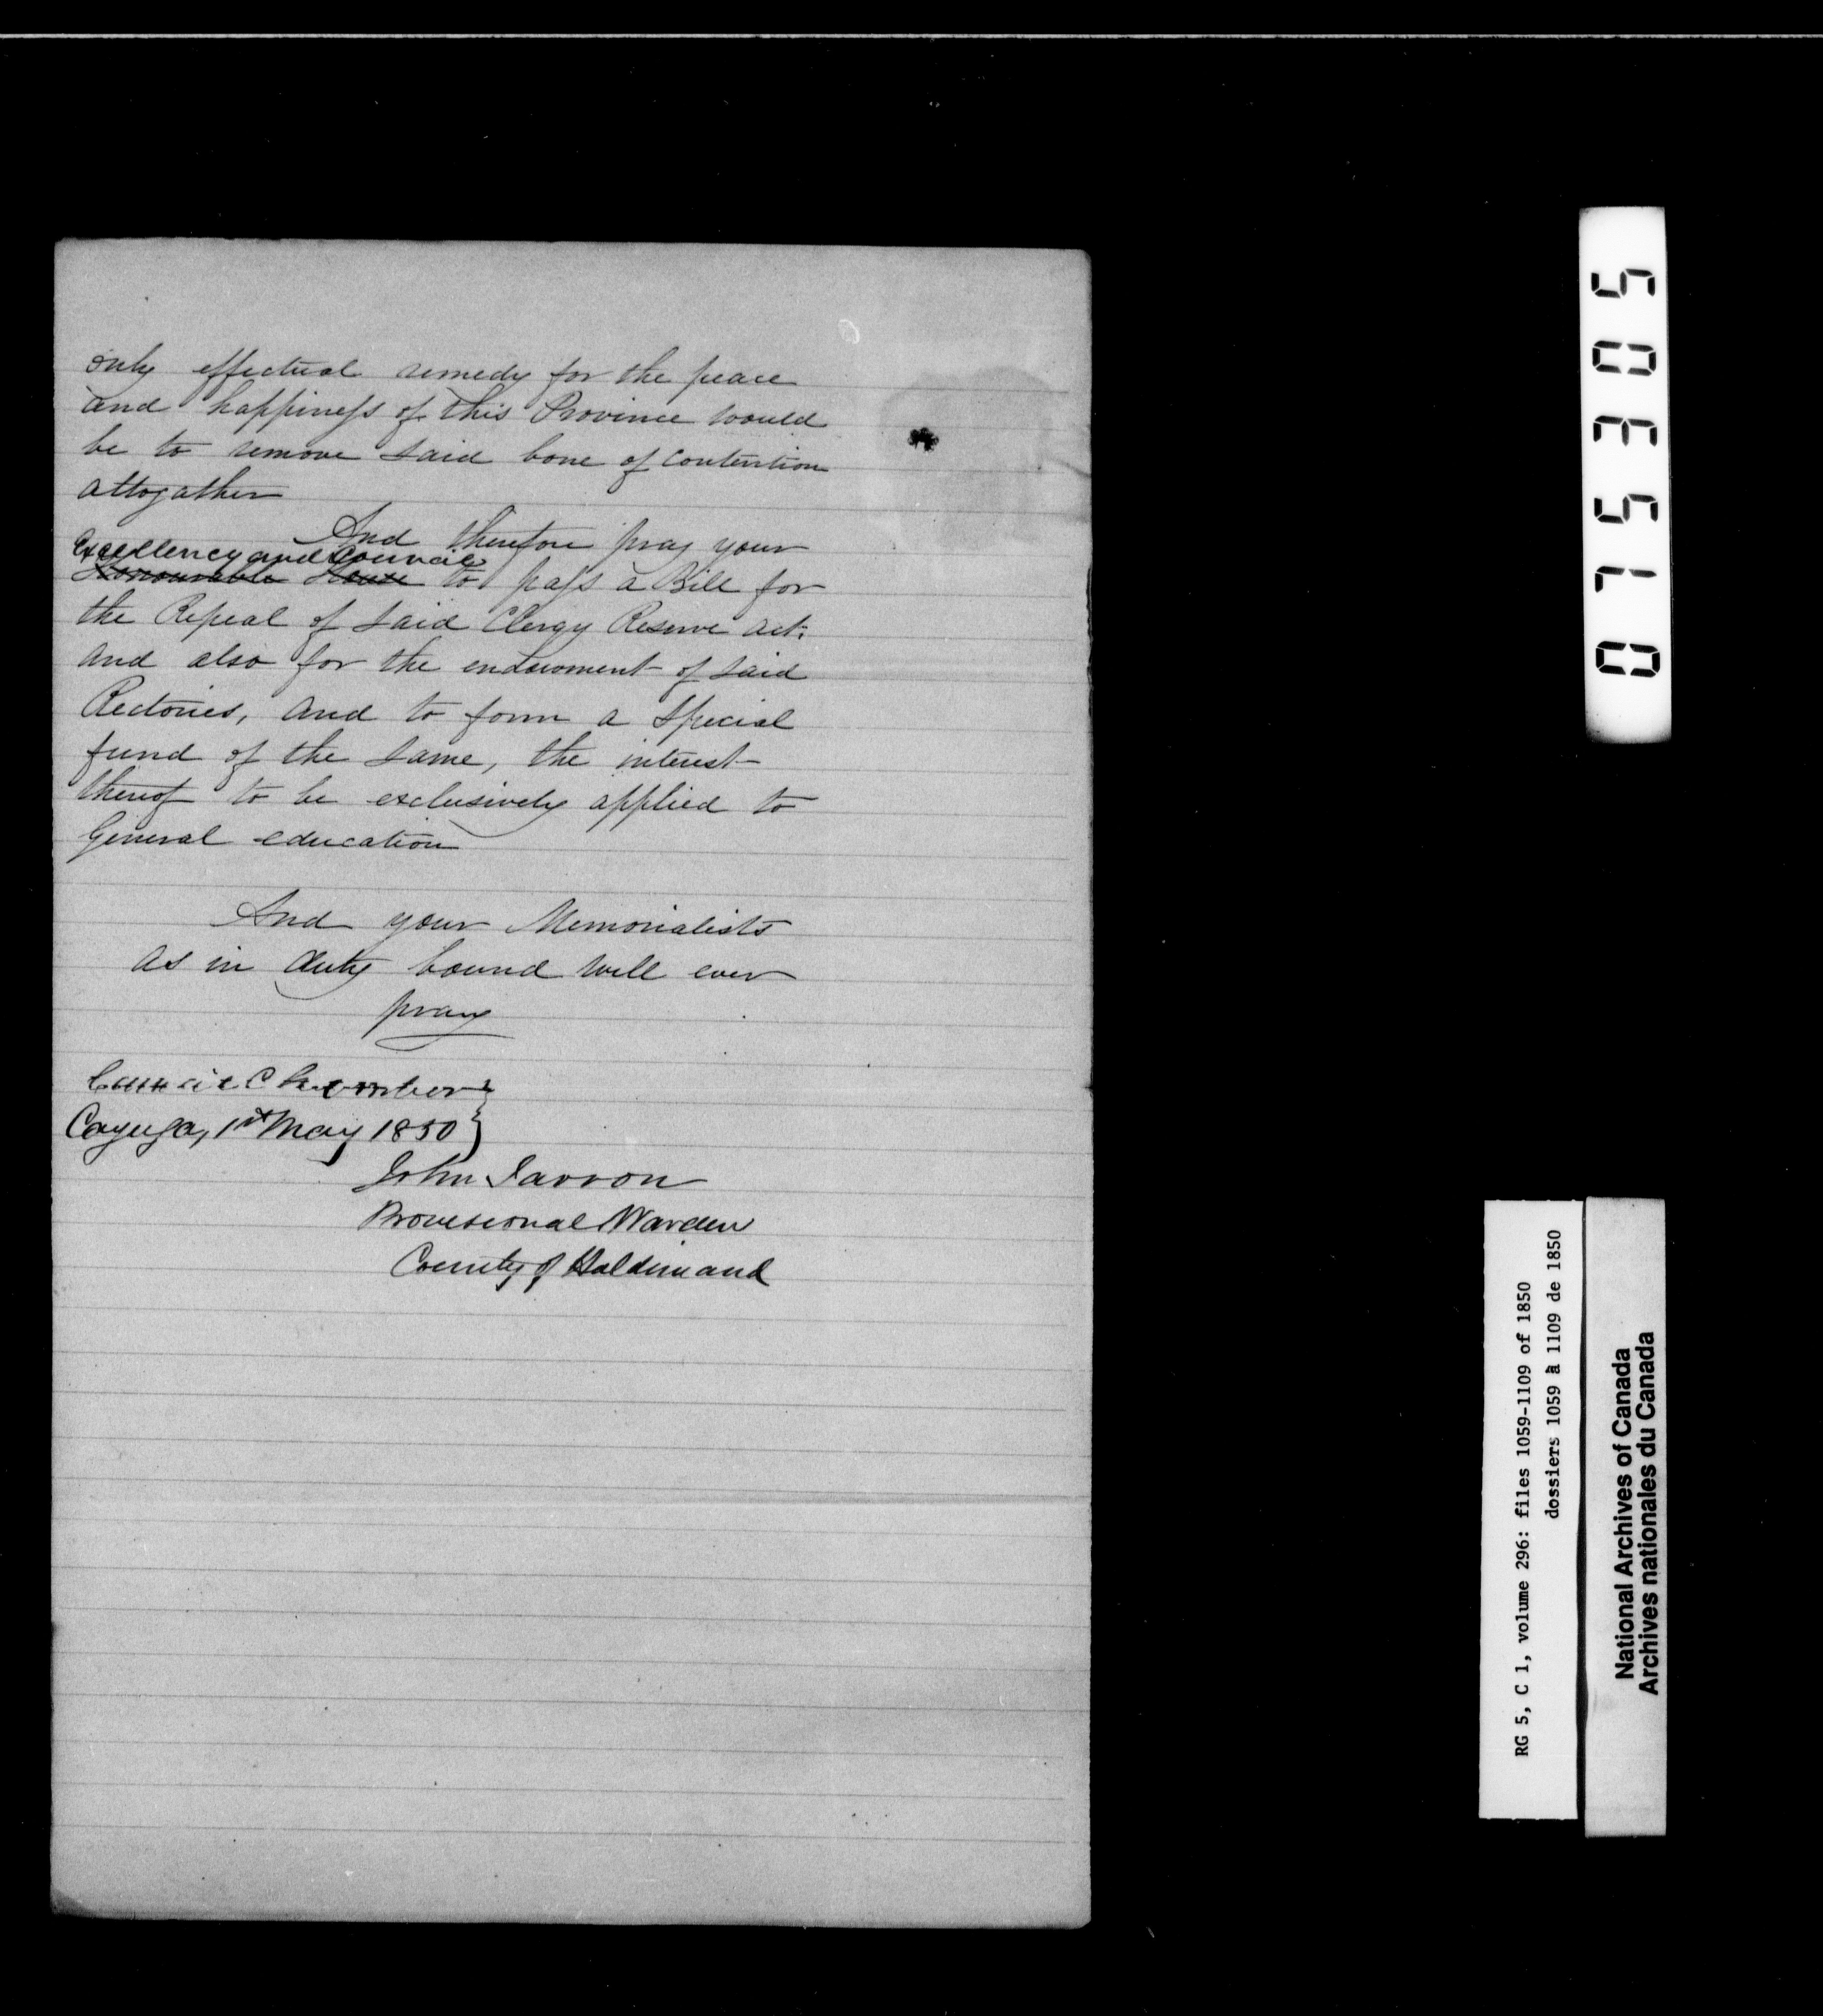 only effectual remedy for the peace
and happiness of this Province would
be to remove said bone of contention
altogather
And therefore pray your
Excellency and Council
Honourable House to pass a Bill for
the Repeal of said Clergy Reserve act;
and also for the endowment of said
Rectories, and to form a special
fund of the same, the interest
thereof to be exclusively applied to
General education
And your Memorialists
as in duty bound will ever
pray
Council Chamber }
Cayuga, 1st May 1850 }
John Jarron
Provisional Warden
County of Haldimand
075305
RG 5, C 1, volume 296: files 1059-1109 of 1850
dossiers 1059 à 1109 de 1850
National Archives of Canada
Archives nationales du Canada